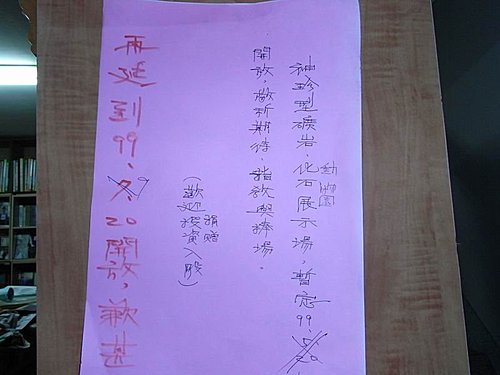 袖珍型礦岩、化石動物園展示場，暫定99、
開放，敬祈期待、指欲與捧場。
（歡迎投資捐贈入股）
再延到99、9、20開放，歉甚